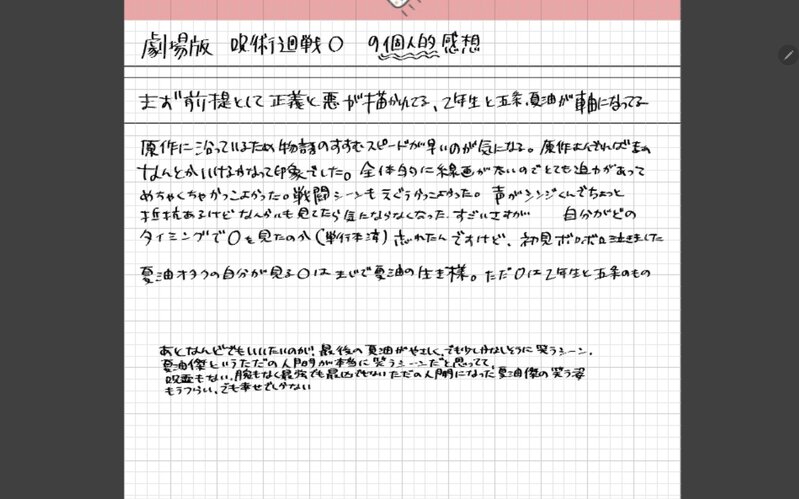 劇場版 呪術廻戦0 の個人的感想
まず前提として正義と悪が描かれてる、2年生と五条、夏油が軸になってる
原作に沿っているため物語のすすむスピードが早いのが気になる。原作よんでればまぁ
なんとかいけるかなって印象でした。全体的に線画が太いのでとても迫力があって
めちゃくちゃかっこよかった。戦闘シーンもえぐうかっこよかった。声がシンジくんでちょっと
抵抗あるけどなんかいも見てたら気にならなくなった すごいさすが 自分がどの
タイミングで0を見たのか(単行本済)忘れたんですけど、初見ボロボロ泣きました
夏油オタクの自分が見る0はまじで夏油の生き様。ただ0は2年生と五条のもの
あとなんどでもいいたいのが、最後の夏油がやさしく、でも少しせつなそうに笑うシーン。
夏油傑というただの人間が本当に笑うシーンだと思ってて、
呪霊もない、腕もなく最強でも最凶でもないただの人間になった夏油傑の笑う姿
もうつらい、でも幸せでしかない